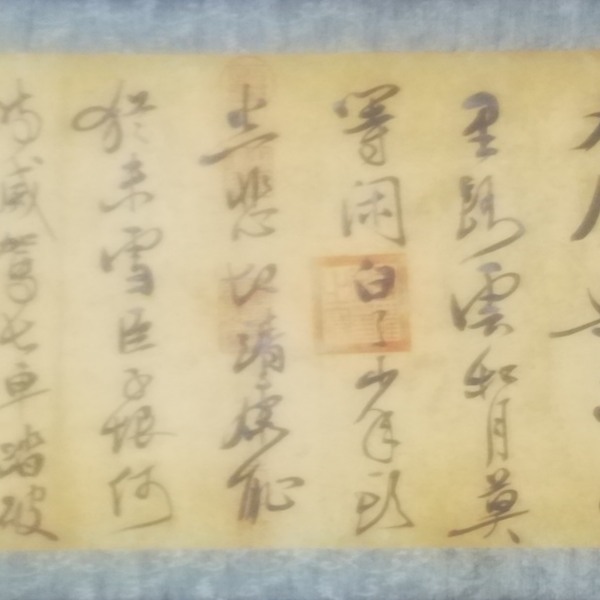 里路雲和月莫
等閑白了少年頭
空悲切靖康恥
猶未雪臣子恨何
時滅駕長車踏破